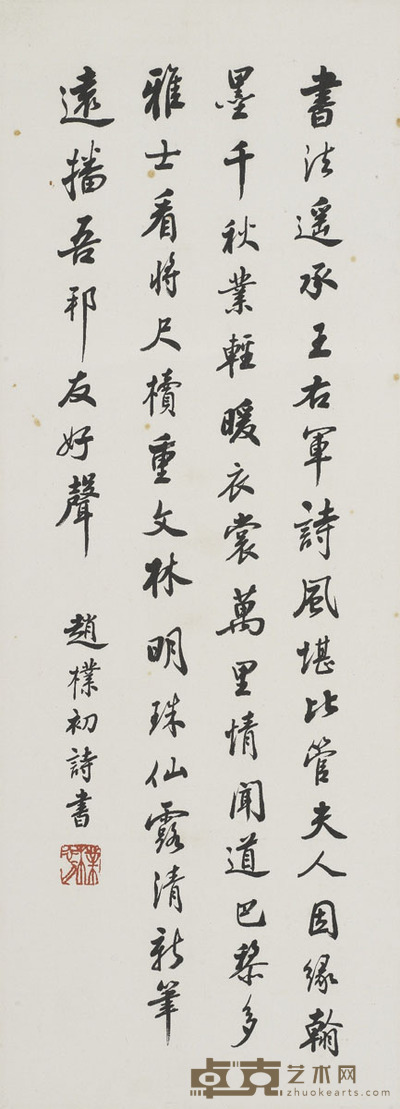 書法遥承王右軍詩風堪比管夫人因緣翰
墨千秋業輕暖衣裳萬里情聞道巴黎多
雅士看將尺櫝重文林明珠仙露清新筆
遠播吾邦友好聲
趙樸初詩書
卓克艺术网
zhuokearts.com